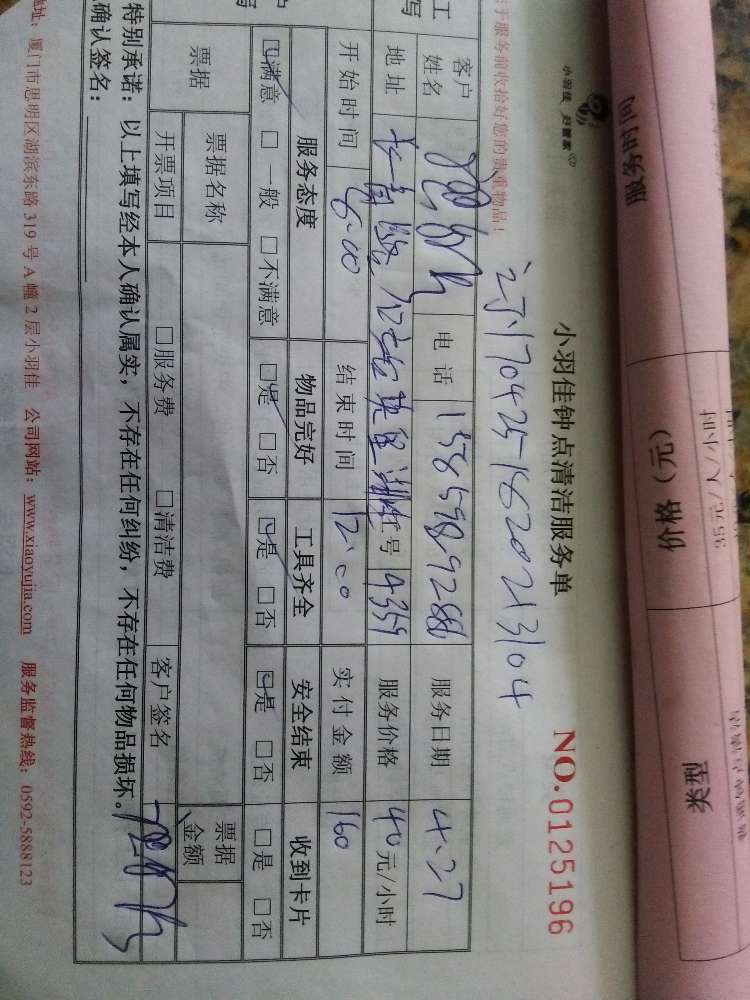 服务时间
价格（元）
35元/人/小时
类型
小羽佳 好管家
小羽佳钟点清洁服务单
NO.0125196
17042516200213104
于服务前收拾好您的贵重物品！
客户姓名
电话
服务日期 4.27
地址
工号 4359
服务价格 40元/小时
开始时间 8:00
结束时间 12:00
实付金额 160
服务态度
物品完好
工具齐全
安全结束
收到卡片
☑满意 □一般 □不满意
☑是 □否
☑是 □否
☑是 □否
□是 □否
票据
票据名称
票据金额
开票项目
□服务费 □清洁费
客户签名
特别承诺：以上填写经本人确认属实，不存在任何纠纷，不存在任何物品损坏。
确认签名：
地址：厦门市思明区湖滨东路 319 号 A 幢 2 层小羽佳 公司网站：www.xiaoyujia.com 服务监督热线：0592-5888123